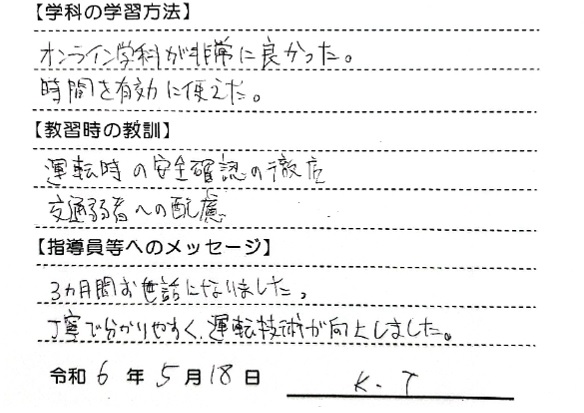 【学科の学習方法】
オンライン学科が非常に良かった。
時間を有効に使えた。
【教習時の教訓】
運転時の安全確認の徹底
交通弱者への配慮
【指導員等へのメッセージ】
3ヵ月間お世話になりました。
丁寧で分かりやすく、運転技術が向上しました。
令和 6 年 5 月 18 日 K.T